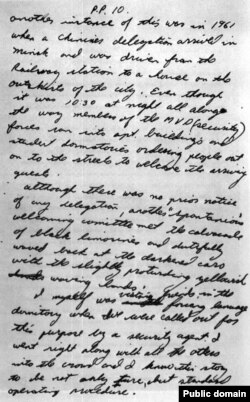 P.P. 10.
another instance of this was in 1961
when a Chinese delegation arrived in
Minsk and was driven from the
Railroay station to a house on the
outskirts of the city. Even though
it was 10:30 at neght all along
the way members of the MVD (security)
forces ran into apt. buildings and
student dormatories ordering people out
on to the streets to welcome the arriving
guests.
although there was no prior notice
of any delegation, another "spontanious"
welcoming committee met the calvacade
of black limousines and dutifully
waved back at the darkend cars
with the slightly protruding yellowish
waving hands.
I myself was visiting freinds in the
dormitory when we were called out for
this purpose by a security agent. I
went right along with all the others
into the crowd and I know this story
to be not only true, but standard
operating procedure.
Public domain